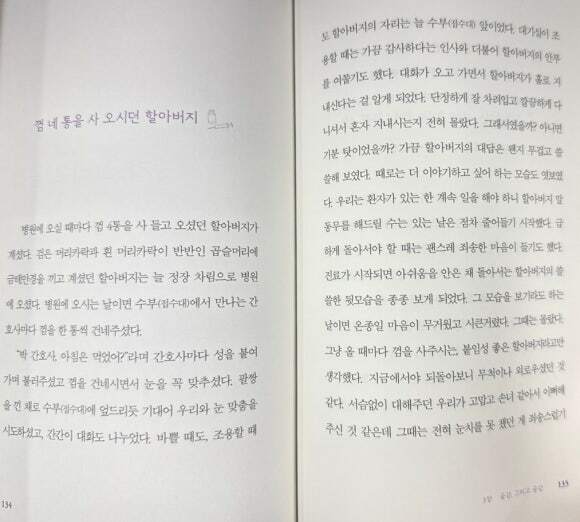 껌 네 통을 사 오시던 할아버지
병원에 오실 때마다 껌 4통을 사 들고 오셨던 할아버지가
계셨다. 검은 머리카락과 흰 머리카락이 반반인 곱슬머리에
금테안경을 끼고 계셨던 할아버지는 늘 정장 차림으로 병원
에 오셨다. 병원에 오시는 날이면 수부(접수대)에서 만나는 간
호사마다 껌을 한 통씩 건네주셨다.
"박 간호사, 아침은 먹었어?"라며 간호사마다 성을 붙여
가며 불러주셨고 껌을 건네시면서 눈을 꼭 맞추셨다. 팔짱
을 낀 채로 수부(접수대)에 엎드리듯 기대어 우리와 눈 맞춤을
시도하셨고, 간간이 대화도 나누었다. 바쁠 때도, 조용할 때
134
도 할아버지의 자리는 늘 수부(접수대) 앞이었다. 대기실이 조
용할 때는 가끔 감사하다는 인사와 더불어 할아버지의 안부
를 여쭙기도 했다. 대화가 오고 가면서 할아버지가 홀로 지
내신다는 걸 알게 되었다. 단장하게 잘 차려입고 깔끔하게 다
니셔서 혼자 지내시는지 전혀 몰랐다. 그래서였을까? 아니면
기분 탓이었을까? 가끔 할아버지의 대답은 왠지 무겁고 쓸
쓸해 보였다. 때로는 더 이야기하고 싶어 하는 모습도 엿보였
다. 우리는 환자가 있는 한 계속 일을 해야 하니 할아버지 말
동무를 해드릴 수는 있는 날은 점차 줄어들기 시작했다. 급
하게 돌아서야 할 때는 괜스레 죄송한 마음이 들기도 했다.
진료가 시작되면 아쉬움을 안은 채 돌아서는 할아버지의 쓸
쓸한 뒷모습을 종종 보게 되었다. 그 모습을 보기라도 하는
날이면 온종일 마음이 무거웠고 시큰거렸다. 그때는 몰랐다.
그냥 올 때마다 껌을 사주시는, 붙임성 좋은 할아버지라고만
생각했다. 지금에서야 되돌아보니 무척이나 외로우셨던 것
같다. 서슴없이 대해주던 우리가 고맙고 손녀 같아서 이뻐해
주신 것 같은데 그때는 전혀 눈치를 못 챘던 게 죄송스럽기
3장 공감, 그리고 공감 133